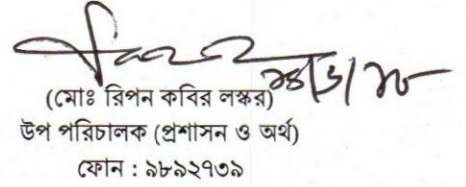 (মোঃ রিপন কবির লস্কর)
উপ পরিচালক (প্রশাসন ও অর্থ)
ফোন : ৯৮৯২৭৩৯